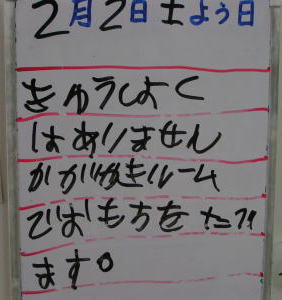 2月2日土よう日
きゅうしょく
はありません
かがやきルーム
でおもちをたべ
ます。